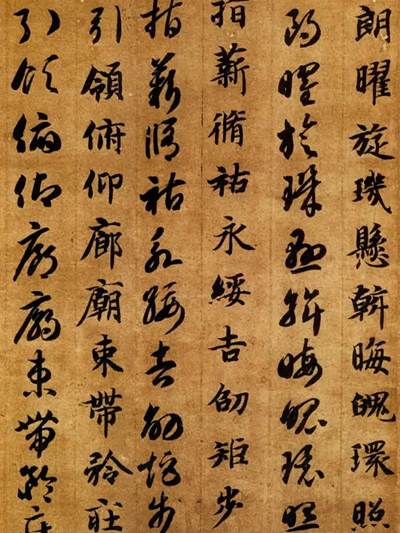 朗曜旋璣懸斡晦魄環照
朗曜旋璣懸斡晦魄環照
指薪脩祜永綏吉劭矩步
指薪脩祜永綏吉劭矩步
引領俯仰廊廟束帶矜莊
引領俯仰廊廟束帶矜莊